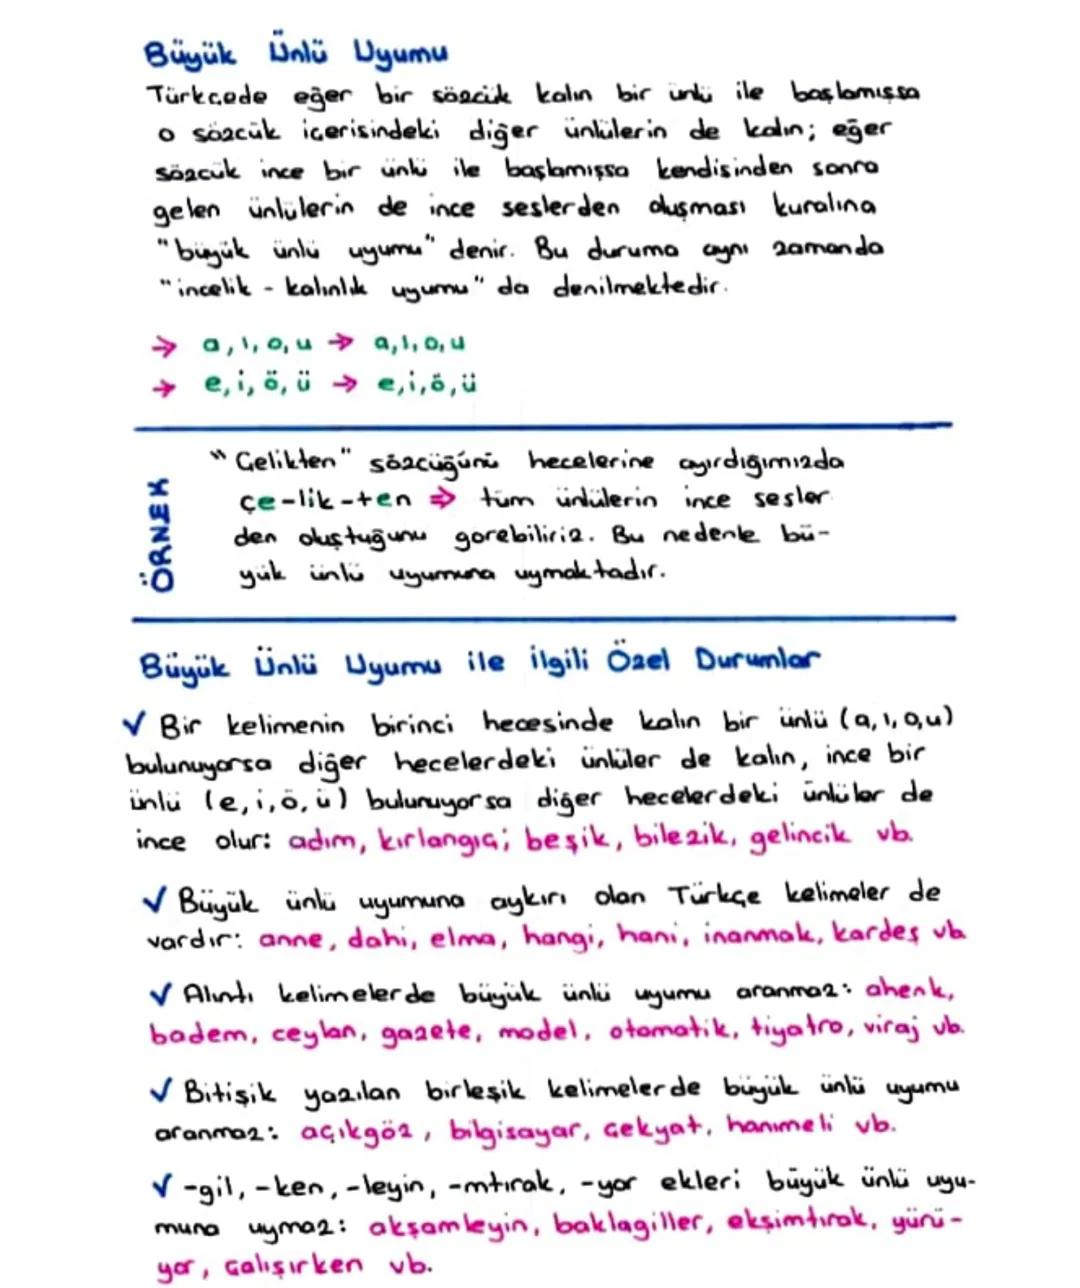 Büyük Ünlü Uyumu
Türkçede eğer bir sözcük kalın bir ünlü ile başlamışsa
o sözcük içerisindeki diğer ünlülerin de kalın; eğer
sözcük ince bir ünlü ile başlamışsa kendisinden sonra
gelen ünlülerin de ince seslerden oluşması kuralına
"büyük ünlü uyumu" denir. Bu duruma aynı zamanda
"incelik - kalınlık uyumu" da denilmektedir.
→ a, ı, o, u → a, ı, o, u
→ e, i, ö, ü → e, i, ö, ü
ÖRNEK
"Çelikten" sözcüğünü hecelerine ayırdığımızda
çe-lik-ten ⇒ tüm ünlülerin ince sesler
den oluştuğunu gorebiliriz. Bu nedenle bü-
yük ünlü uyumuna uymaktadır.
Büyük Ünlü Uyumu ile ilgili Özel Durumlar
✓ Bir kelimenin birinci hecesinde kalın bir ünlü (a, ı, o, u)
bulunuyorsa diğer hecelerdeki ünlüler de kalın, ince bir
ünlü (e, i, ö, ü) bulunuyorsa diğer hecelerdeki ünlüler de
ince olur: adım, kırlangıç; beşik, bilezik, gelincik vb.
✓ Büyük ünlü uyumuna aykırı olan Türkçe kelimeler de
vardır: anne, dahi, elma, hangi, hani, inanmak, kardeş vb
✓ Alıntı kelimelerde büyük ünlü uyumu aranmaz: ahenk,
badem, ceylan, gazete, model, otomatik, tiyatro, viraj vb.
✓ Bitişik yazılan birleşik kelimelerde büyük ünlü uyumu
aranmaz: açıkgöz, bilgisayar, çekyat, hanımeli vb.
✓ -gil, -ken, -leyin, -mtırak, -yor ekleri büyük ünlü uyu-
muna uymaz: akşamleyin, baklagiller, ekşimtırak, yürü-
yor, çalışırken vb.